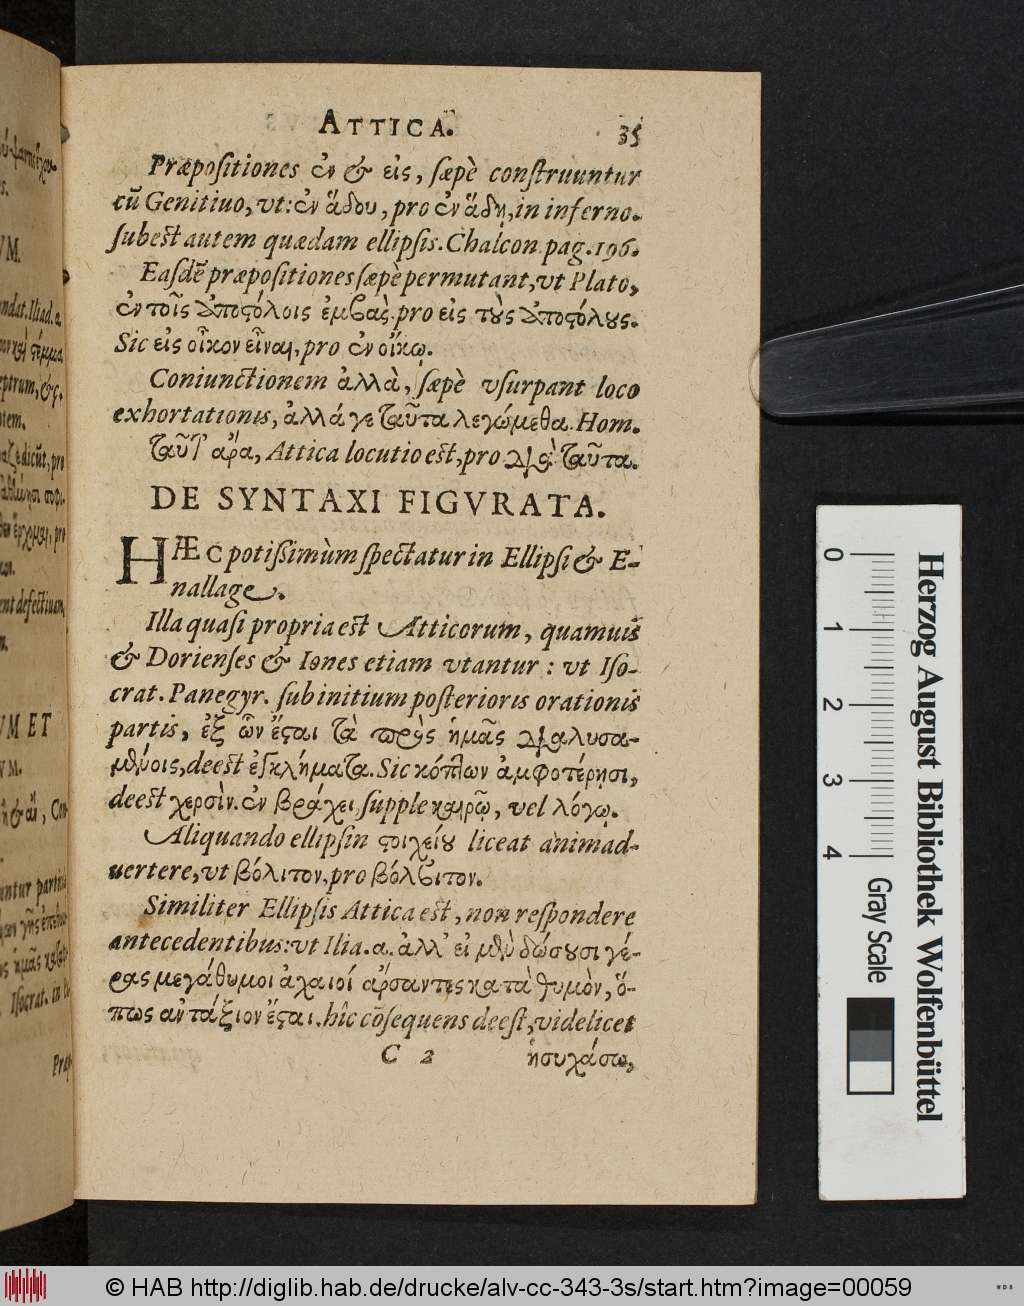 ATTICA. 35
Præpositiones ἐν & εἰς, sæpè construuntur
cũ Genitiuo, vt: ἐν ἅδου, pro ἐν ἅδῃ, in inferno.
subest autem quædam ellipsis. Chalcon. pag. 196.
Easdẽ præpositiones sæpè permutant, vt Plato,
ἐν τοῖς ἀποςόλοις ἐμβὰς. pro εἰς τὺς ἀποςόλȣς.
Sic εἰς οἶκον εἶναι, pro ἐν οἴκῳ.
Coniunctionem ἀλλὰ, sæpè vsurpant loco
exhortationis, ἀλλά γε ταῦτα λεγώμεθα. Hom.
ταῦτ' ἄρα, Attica locutio est, pro διὰ ταῦτα.
DE SYNTAXI FIGVRATA.
HÆC potissimùm spectatur in Ellipsi & E-
nallage.
Illa quasi propria est Atticorum, quamuis
& Dorienses & Iones etiam vtantur: vt Iso-
crat. Panegyr. sub initium posterioris orationis
partis, ἐξ ὧν ἔςαι τὰ πρὸς ἡμᾶς διαλυσα-
μένοις, deest ἐγκλήματα. Sic κόπτων ἀμφοτέρῃσι,
deest χερσὶν. ἐν βράχει, supple καιρῷ, vel λόγῳ.
Aliquando ellipsin ςοιχείȣ liceat animad-
uertere, vt βόλιτον, pro βόλβιτον.
Similiter Ellipsis Attica est, non respondere
antecedentibus: vt Ilia. α. ἀλλ' εἰ μὲν δώσȣσι γέ-
ρας μεγάθυμοι ἀχαιοί ἄρσαντες κατὰ θυμὸν, ὅ-
πως ἀντάξιον ἔςαι. hîc cõsequens deest, videlicet
C 2 ἡσυχάσω,
0 1 2 3 4
Gray Scale
Herzog August Bibliothek Wolfenbüttel
© HAB http://diglib.hab.de/drucke/alv-cc-343-3s/start.htm?image=00059